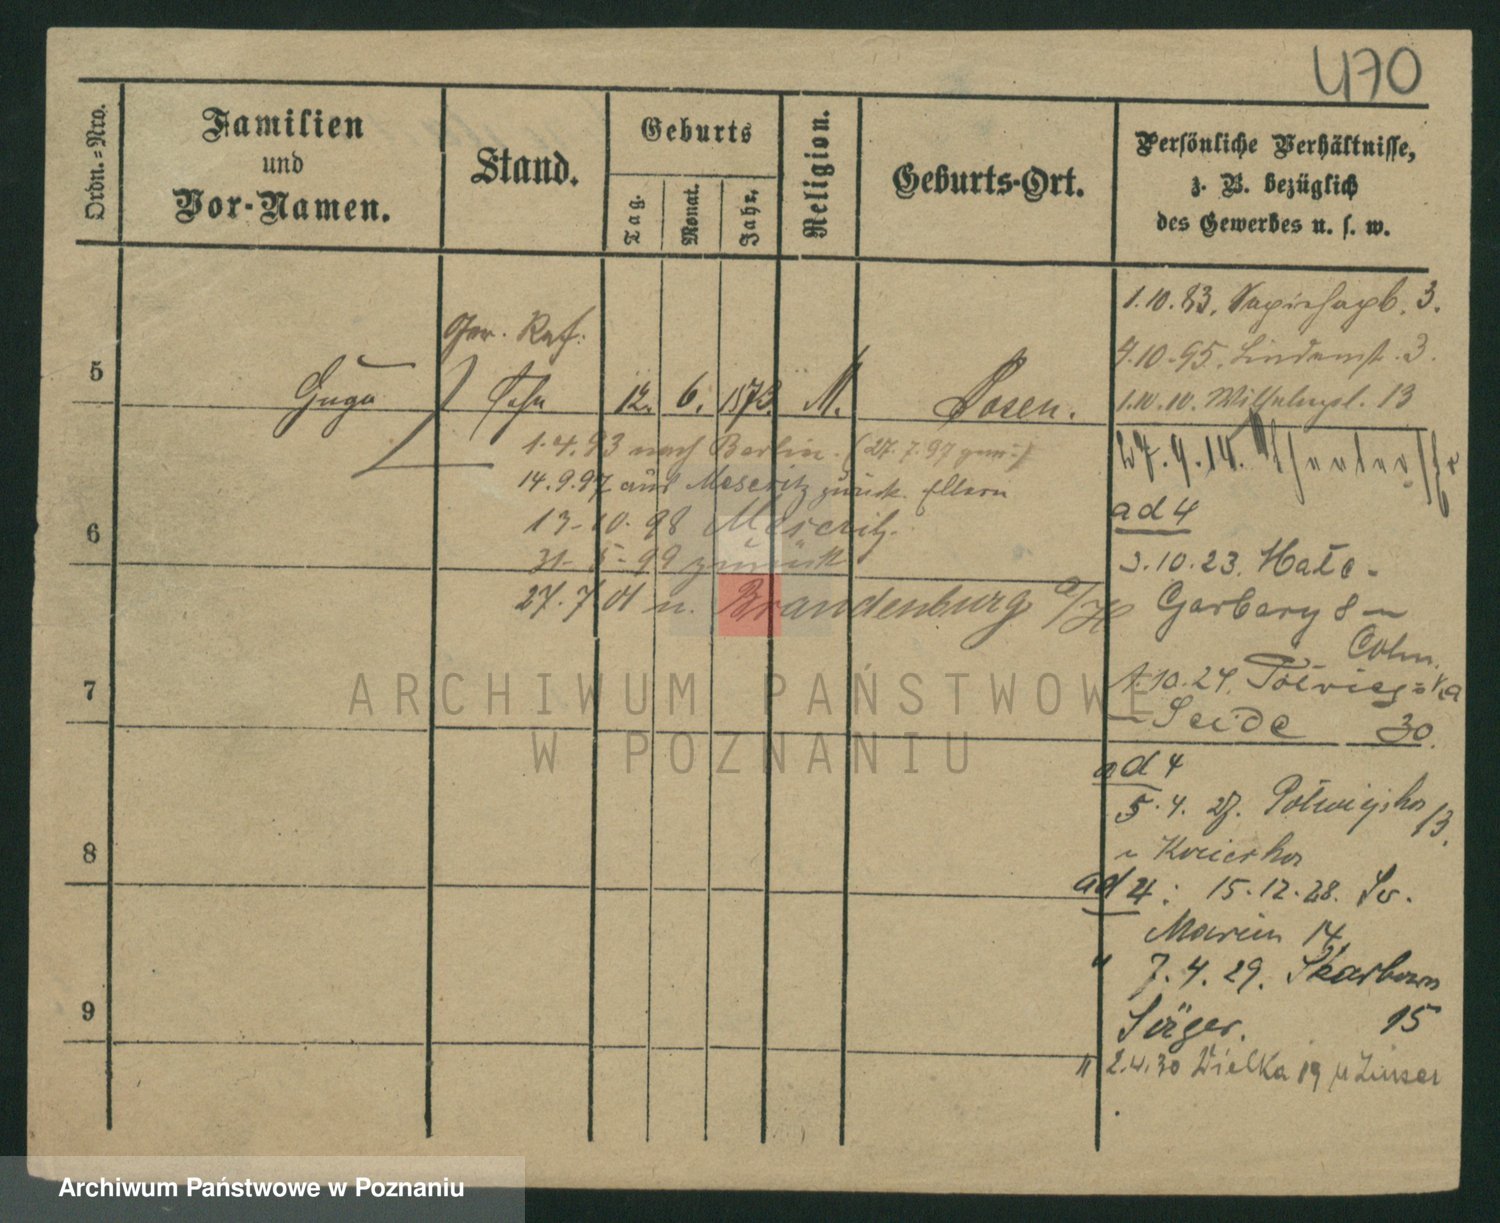 470
Ordn.-Nro.
Familien
und
Vor-Namen.
Stand.
Geburts
Tag.
Monat.
Jahr.
Religion.
Geburts-Ort.
Persönliche Verhältnisse,
z. B. bezüglich
des Gewerbes u. s. w.
1.10.83. 3.
7.10.95. Lindenst. 3.
1.10.10. Wilhelmspl. 13
27.9.14.
5
Hugo
Ger. Ref.
Sohn
12. 6. 1873. M. Posen.
1.4.93 nach Berlin. (27.7.97
14.9.97 aus Meseritz zurück. Eltern
13-10.98 Meseritz.
31-5-99 zurück
27.7.01 n. Brandenburg a/H
ad 4
3.10.23. Małe-
Garbary 8
Cohn.
1.10.24. 
Seide 30.
ad 4
5.4.27. 13.
ad 4: 15.12.28. Św.
Marcin 14,
" 7.4.29. Skarbowa
15
" 2.4.30 Wielka 19
6
7
8
9
ARCHIWUM PAŃSTWOWE
W POZNANIU
Archiwum Państwowe w Poznaniu